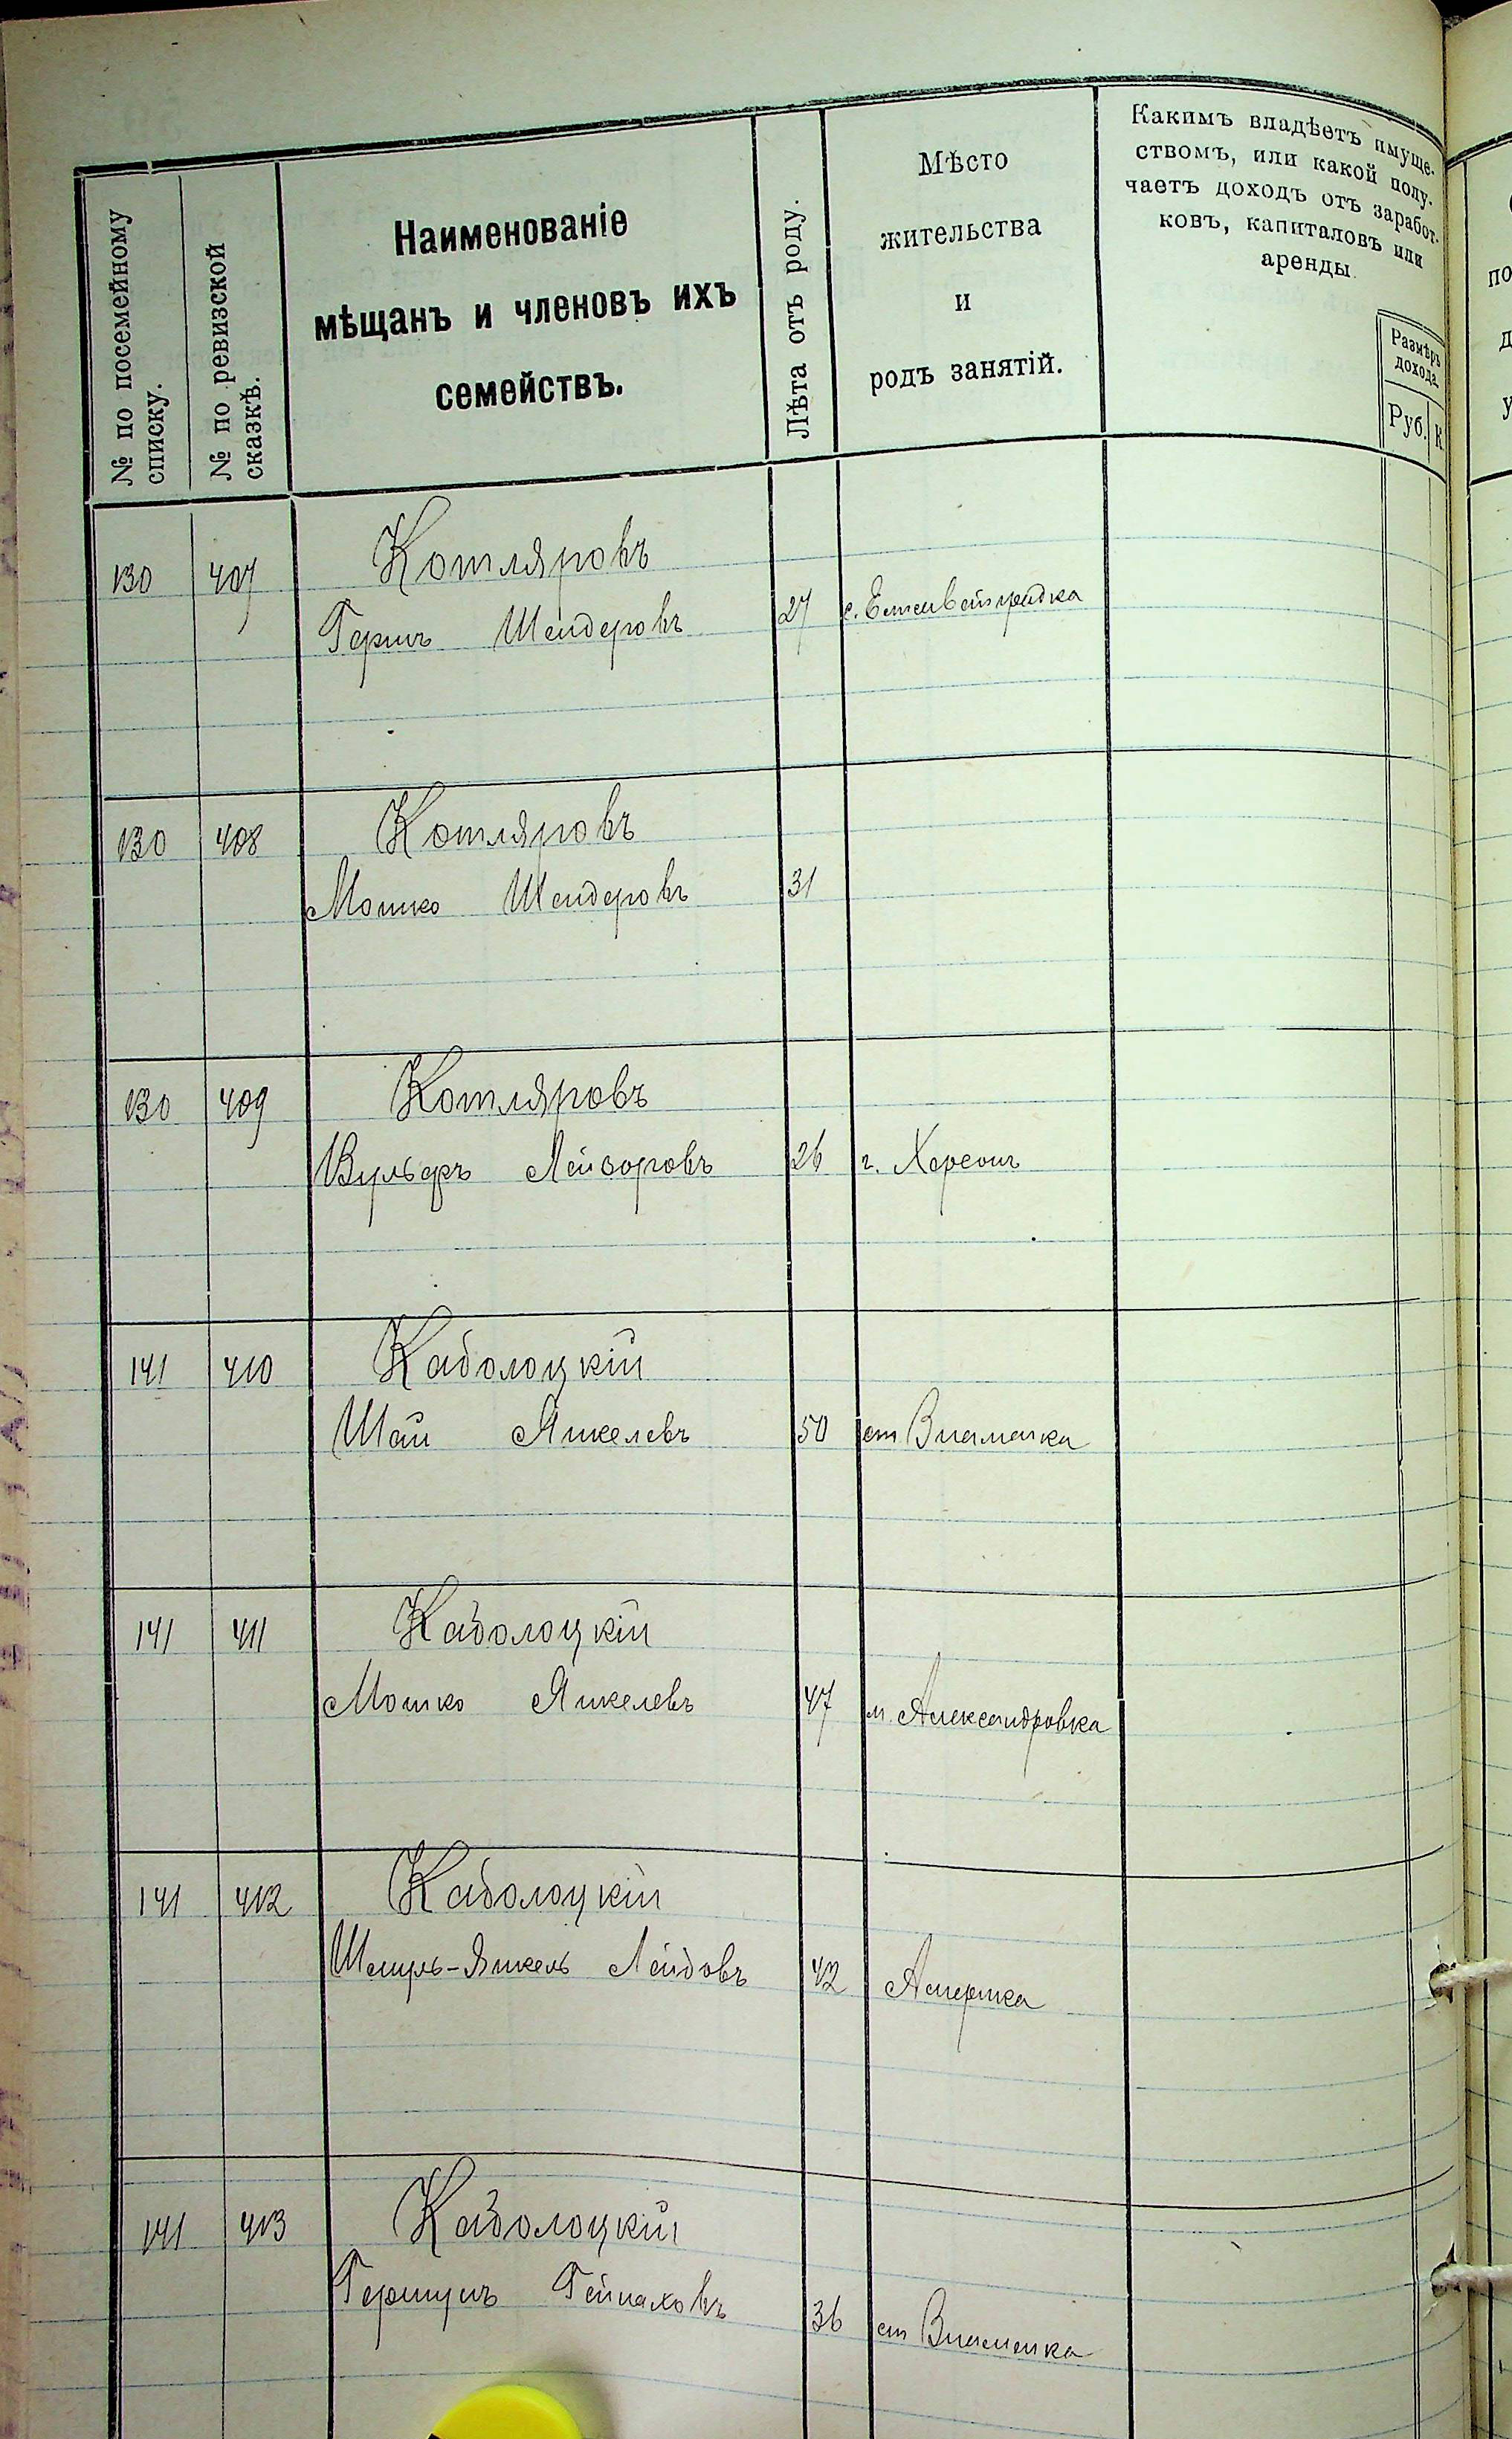 № по посемейному
списку.
№ по ревизской
сказкѣ.
Наименованіе
мѣщанъ и членовъ ихъ
семействъ.
Лѣта отъ роду.
Мѣсто
жительства
и
родъ занятій.
Какимъ владѣетъ имуще-
ствомъ, или какой полу-
чаетъ доходъ отъ заработ-
ковъ, капиталовъ или
аренды.
Размѣръ
дохода.
Руб. К.
130 407 Котляровъ
Гершъ Шендеровъ 27
130 408 Котляровъ
Мошко Шендеровъ 31
130 409 Котляровъ
Вульфъ Лейзоровъ 26 г. Херсонъ
141 410 Каболоцкій
Шай Янкелевъ 50 ст Знаменка
141 411 Каболоцкій
Мошко Янкелевъ 47 м. Александровка
141 412 Каболоцкій
Шмуль-Янкель Лейбовъ 42 Америка
141 413 Каболоцкій
Гершунъ Гейнаховъ 36 ст Знаменка